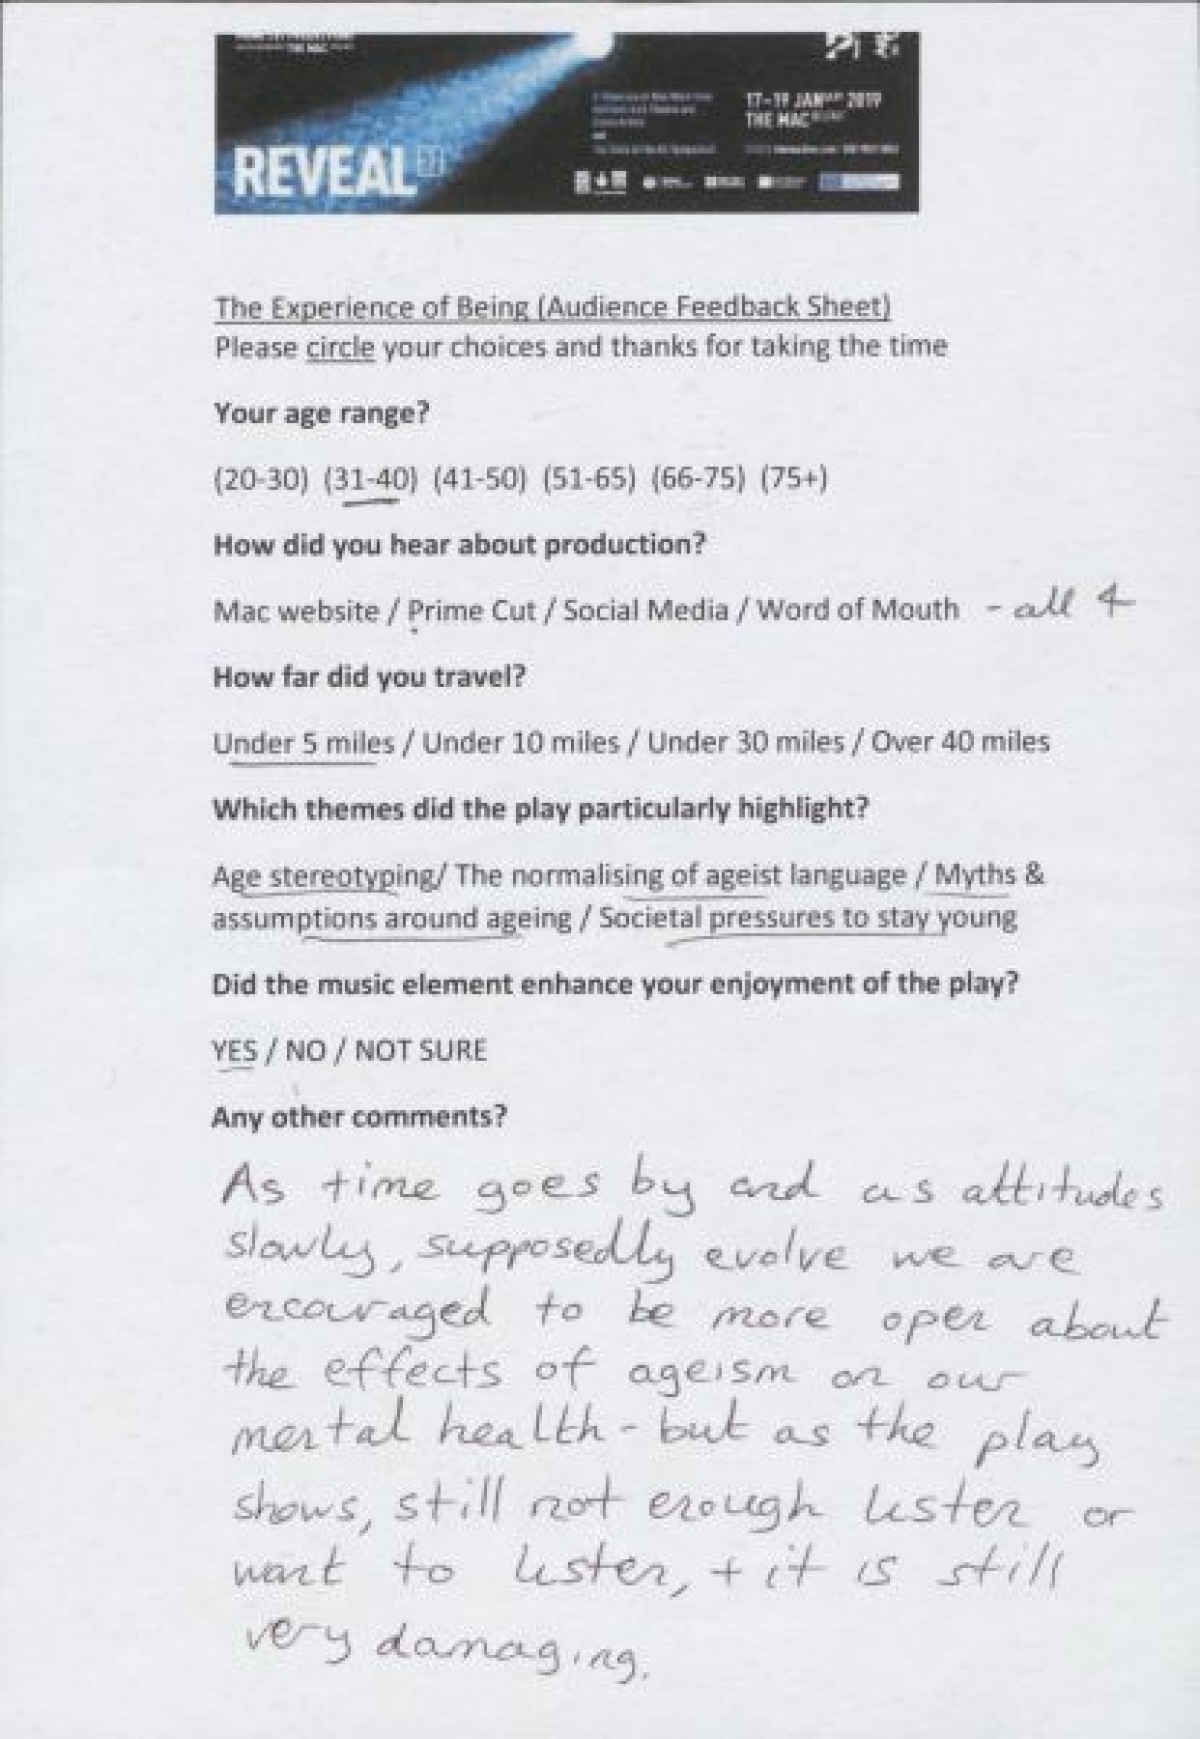 THE MAC
REVEAL
17-19 JAN 2019
THE MAC
The Experience of Being (Audience Feedback Sheet)
Please circle your choices and thanks for taking the time
Your age range?
(20-30) (31-40) (41-50) (51-65) (66-75) (75+)
How did you hear about production?
Mac website / Prime Cut / Social Media / Word of Mouth - all 4
How far did you travel?
Under 5 miles / Under 10 miles / Under 30 miles / Over 40 miles
Which themes did the play particularly highlight?
Age stereotyping/ The normalising of ageist language / Myths &
assumptions around ageing / Societal pressures to stay young
Did the music element enhance your enjoyment of the play?
YES / NO / NOT SURE
Any other comments?
As time goes by and as attitudes
slowly, supposedly evolve we are
encouraged to be more open about
the effects of ageism on our
mental health - but as the play
shows, still not enough listen or
want to listen, + it is still
very damaging.